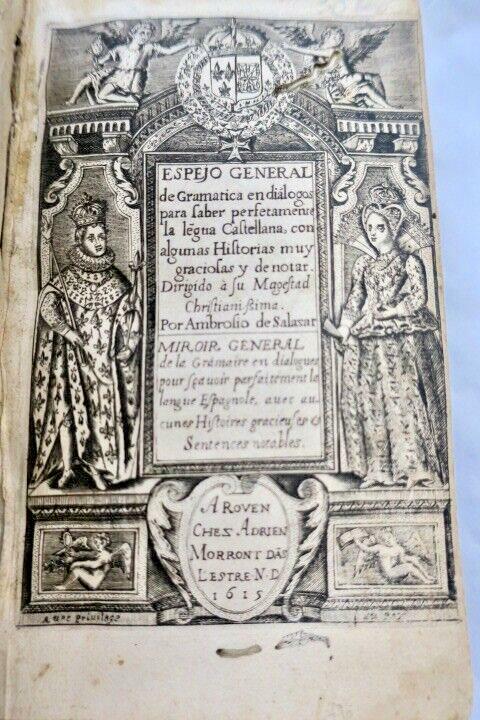 ESPEJO GENERAL
de Gramatica en diálogos
para ſaber perfetamente
la lẽgua Caſtellana, con
algunas Hiſtorias muy
gracioſas y de notar.
Dirigido à ſu Mageſtad
Chriſtianiſsima.
Por Ambroſio de Salazar
MIROIR GENERAL
de la Grãmaire en dialogues
pour ſçavoir parfaitement la
langue Eſpagnole, avec au
cunes Hiſtoires gracieuſes &
Sentences notables.
A ROVEN
CHEZ ADRIEN
MORRONT DÃS
L'ESTRE N.D
1615